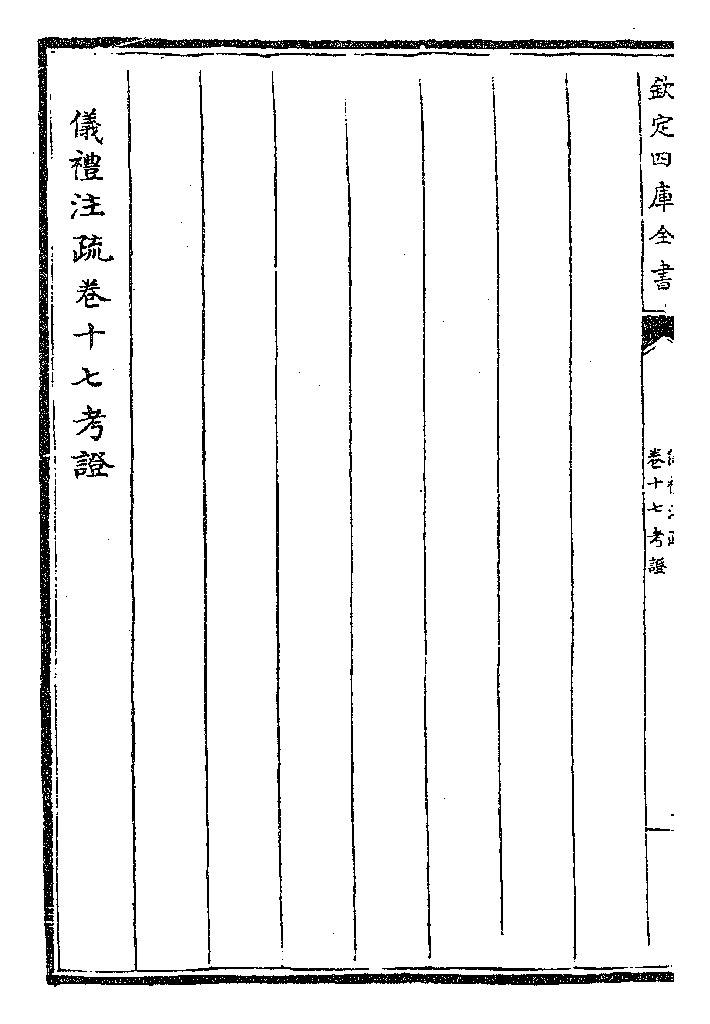 欽定四庫全書
儀禮注疏
卷十七考證
儀禮注疏卷十七考證